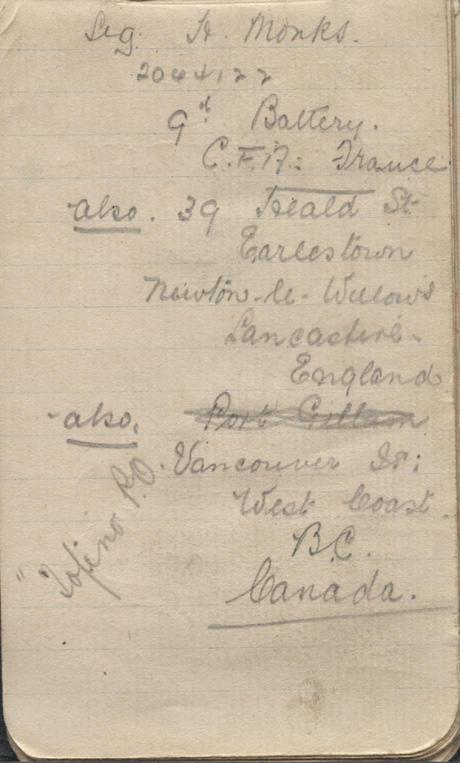 Sig. H. Monks.
2044122
9th Battery.
C.F.A.: France
also. 39 Heald St.
Earlestown
Newton-le-Willows
Lancashire-
England
also. Port Gillam
Vancouver Is:
West Coast.
B.C.
Canada.
"Tofino P.O.